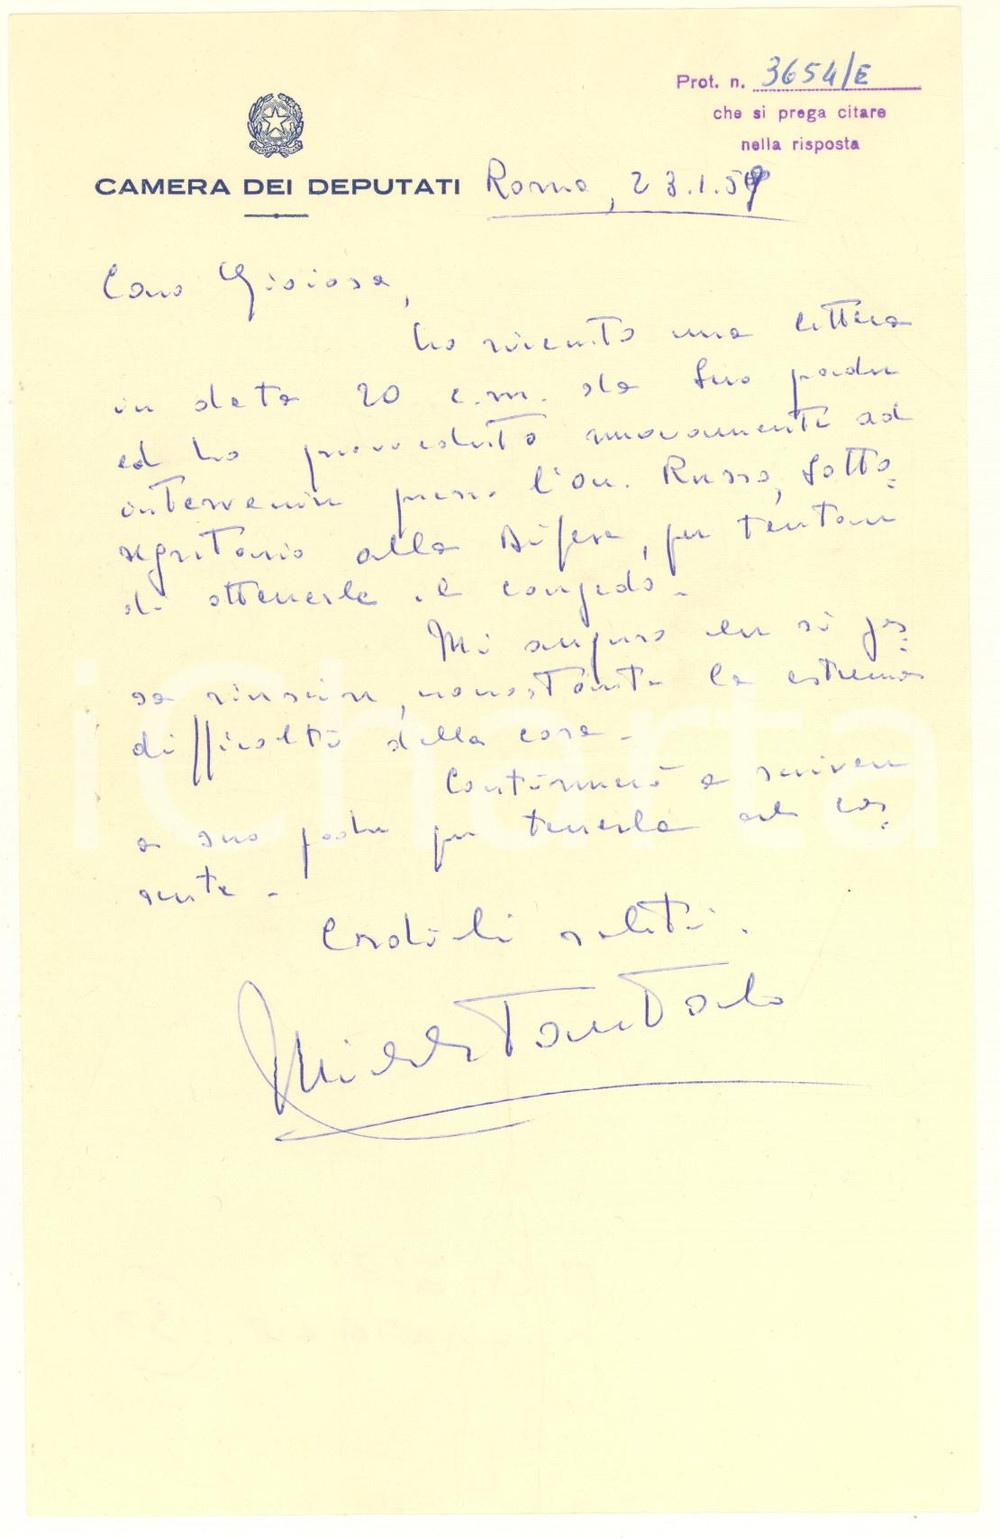 Prot. n. 3654/E
che si prega citare
nella risposta
CAMERA DEI DEPUTATI Roma, 23.1.59
Caro Gioiosa,
ho ricevuto una lettera
in data 20 c.m. da Suo padre
ed ho provveduto nuovamente ad
intervenire presso l'on. Russo, Sotto=
segretario alla Difesa, per tentare
di ottenerle il congedo.
Mi auguro che si pos=
sa riuscire, nonostante la estrema
difficoltà della cosa.
Continuerò a scrivere
a suo padre per tenerla al cor=
rente.
Cordiali saluti.
Michele Tantalo
iCharta